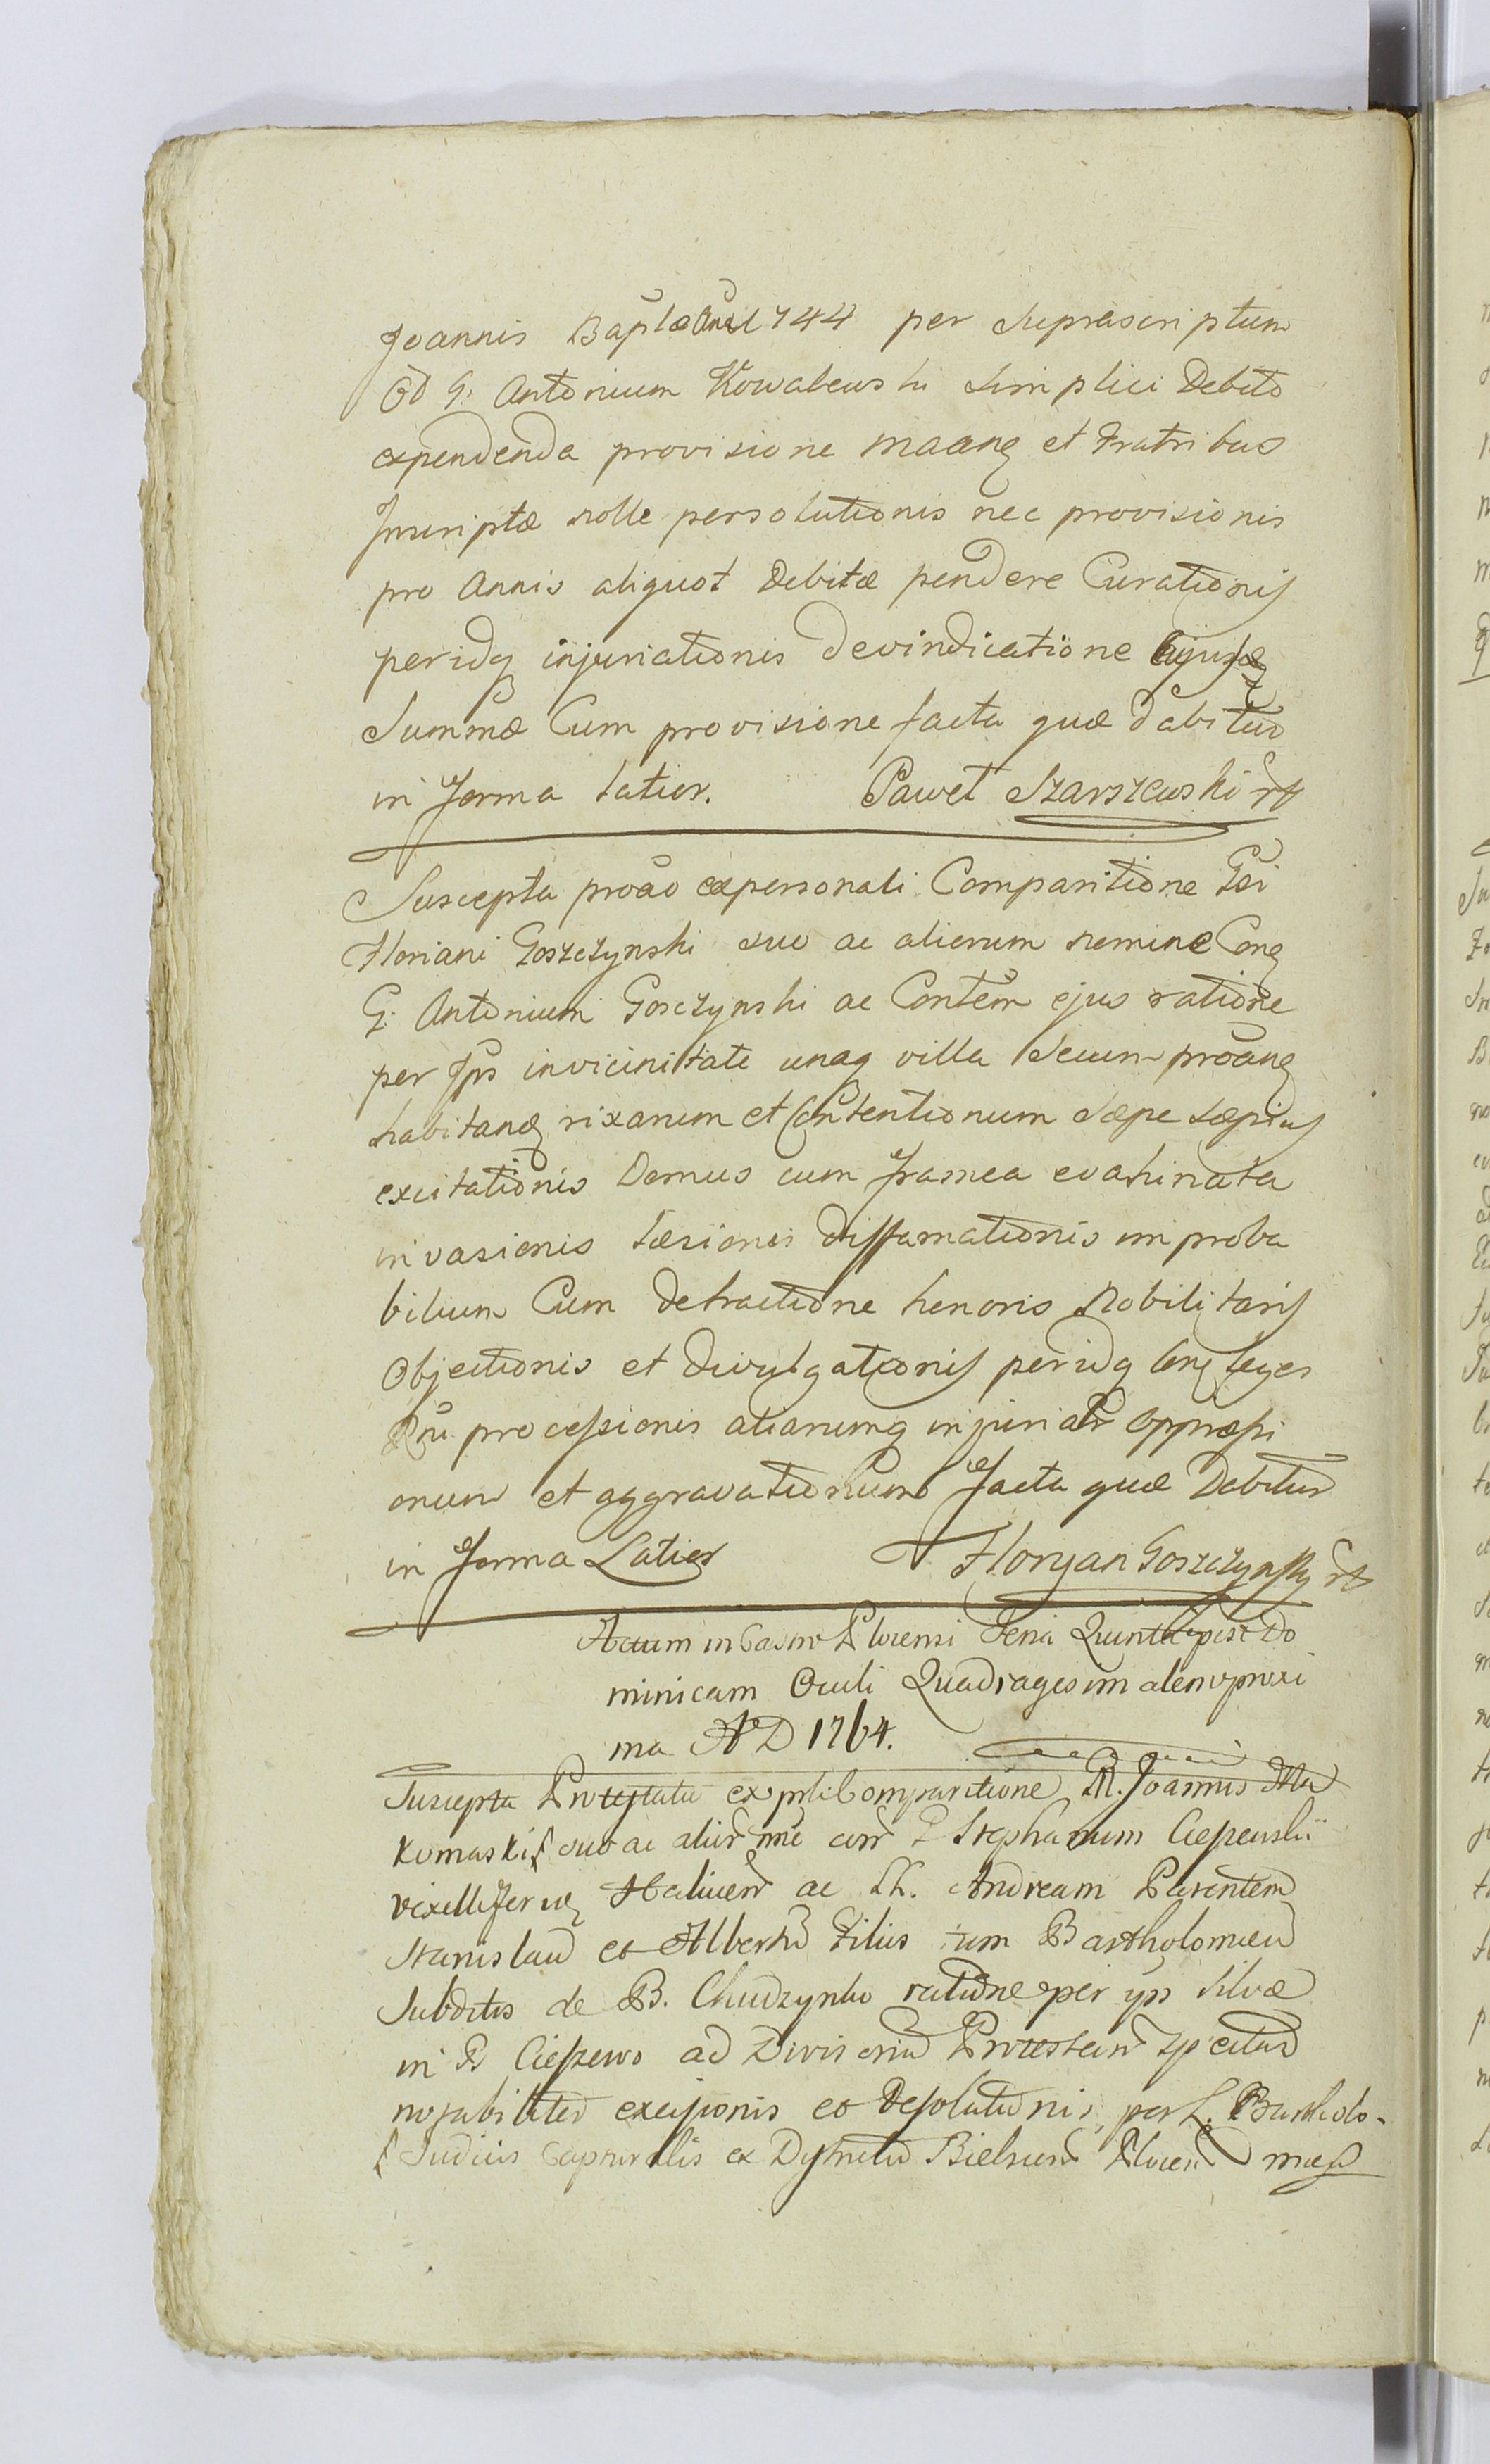 Joannis Baptæ 1744 per Suprascriptum
G: Antonium Kowalewski Simplici Debito
expendenda provisione et Fratribus
Inscriptæ nolle persolutionis nec provisionis
pro Annis aliquot Debitæ pendere Curationis
peridq injuriationis Devindicatione
Summæ Cum provisione facta quæ dabitur
in forma latior. Paweł Szarszewski
Suscepta expersonali Comparitione
Floriani Goszczynski suo ac alierum nemine Conq
G: Antonium Gosczynski ac Contem ejus ratione
per Ips invicinitate unaq villa Secum
habitanq rixarum et Contentionum Sæpe sæpius
excitationis Domus cum framea evahinata
invasionis læsionis diffamationis improba
bilium Cum detractione honoris Nobilitaris
Objectionis et divulgationis peridq leges
processionis aliarumq injuriar oppressi
onum et aggravationum facta quæ Dabitur
in forma Latior Floryan Goszczynsky
Actum in Castro Plocensi Feria Quinta post Do
minicam Oculi Quadragesimalem proxi
ma AD 1764.
Suscepta Protestatio Comparitione M. Joannis Ma
komaski suo ac Stephanum Ciepenskii
vexillifer Halicien ac Andream Parentem
Stanislau et Albertu Filius tum Bartholomeu
Subditis de B. Chudzynko ratione per ips Silvæ
in B Ciepzewo ad Divisoriu
notabiliter excisionis et Desolationis per L. Bartholo-
Judicis Capturalis ex Dystrictu Bielscen Plocen